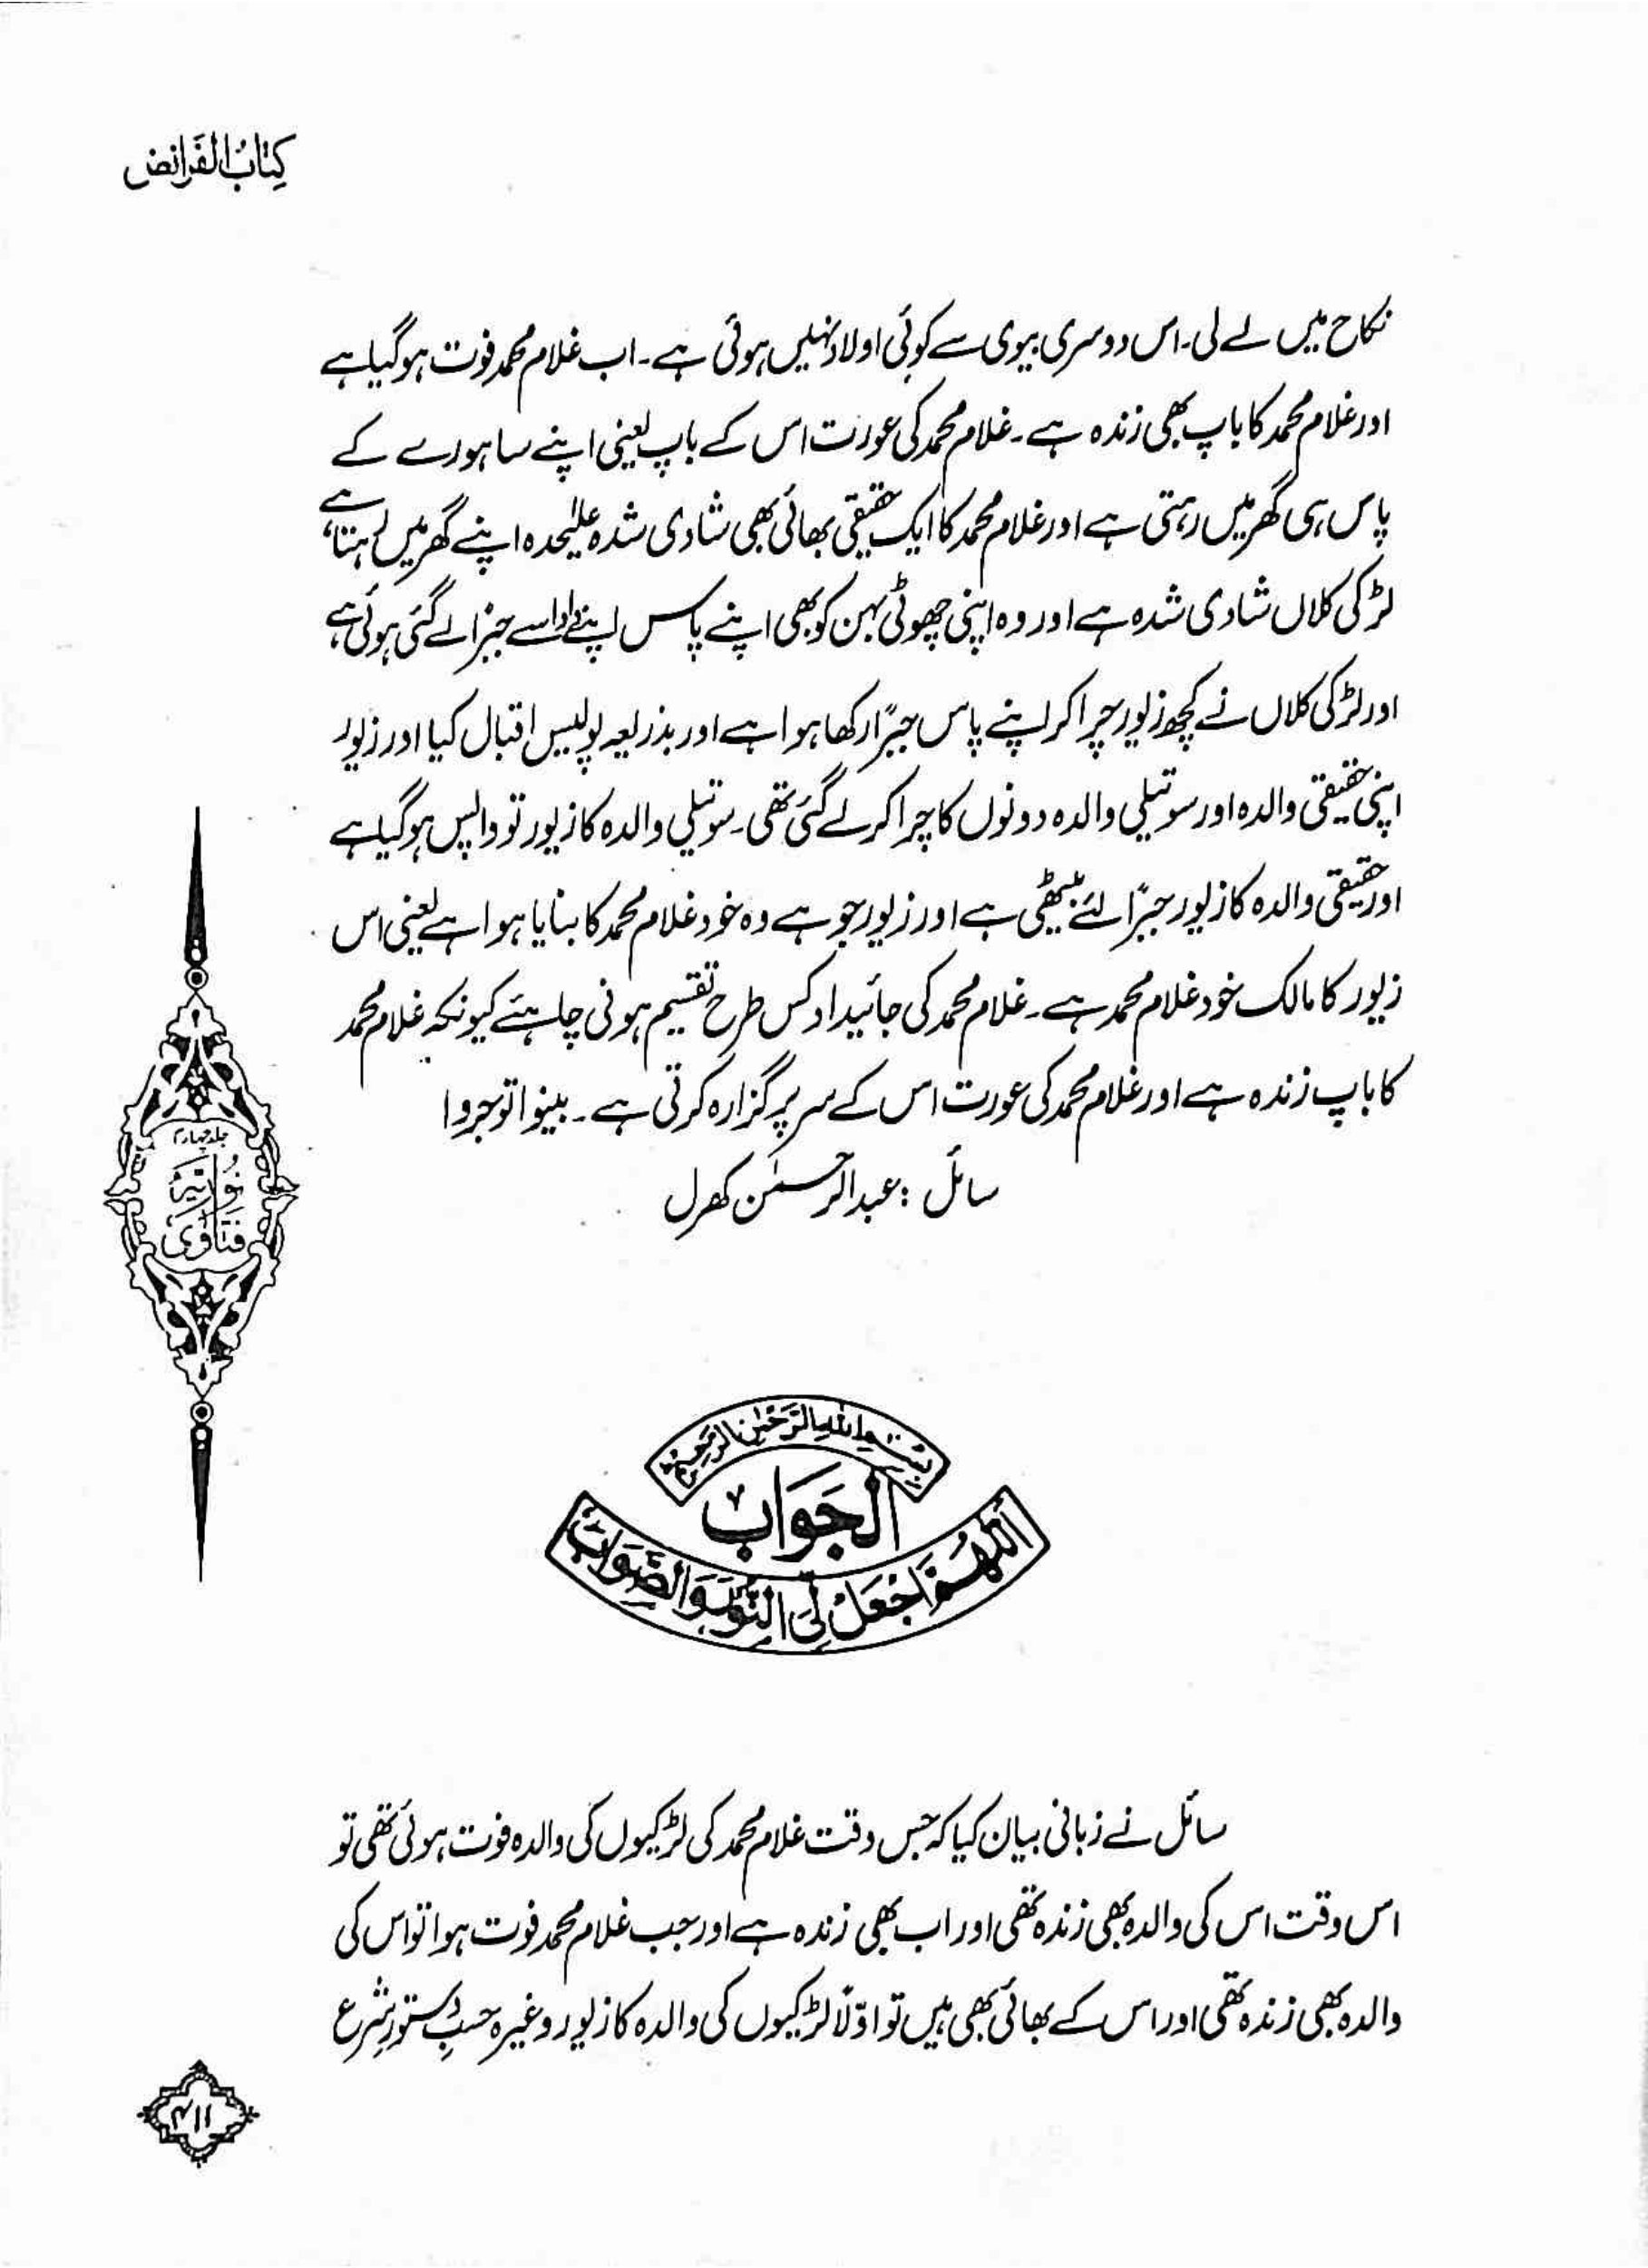 کِتابُ الفَرائض
نکاح میں لے لی۔ اس دوسری بیوی سے کوئی اولاد نہیں ہوئی ہے۔ اب غلام محمد فوت ہو گیا ہے
اور غلام محمد کا باپ بھی زندہ ہے۔ غلام محمد کی عورت اس کے باپ یعنی اپنے ساہورے کے
پاس ہی گھر میں رہتی ہے اور غلام محمد کا ایک حقیقی بھائی بھی شادی شدہ علیٰحدہ اپنے گھر میں رہتا ہے،
لڑکی کلاں شادی شدہ ہے اور وہ اپنی چھوٹی بہن کو بھی اپنے پاس اپنے دادا سے جبراً لے گئی ہوئی ہے
اور لڑکی کلاں نے کچھ زیور چرا کر اپنے پاس جبراً رکھا ہوا ہے اور بذریعہ پولیس اقبال کیا اور زیور
اپنی حقیقی والدہ اور سوتیلی والدہ دونوں کا چرا کر لے گئی تھی۔ سوتیلی والدہ کا زیور تو واپس ہو گیا ہے
اور حقیقی والدہ کا زیور جبراً لئے بیٹھی ہے اور زیور جو ہے وہ خود غلام محمد کا بنایا ہوا ہے یعنی اس
زیور کا مالک خود غلام محمد ہے۔ غلام محمد کی جائیداد کس طرح تقسیم ہونی چاہئے کیونکہ غلام محمد
کا باپ زندہ ہے اور غلام محمد کی عورت اس کے سر پر گزارہ کرتی ہے۔ بینوا توجروا
سائل : عبدالرحمٰن کھرل
جلد چہارم
نُوریَّہ
فتاویٰ
بِسْمِ اللہِ الرَّحْمٰنِ الرَّحِیْمِ
الْجَوَابُ
اَللّٰھُمَّ اجْعَلْ لِیَ النُّوْرَ وَالصَّوَابَ
سائل نے زبانی بیان کیا کہ جس وقت غلام محمد کی لڑکیوں کی والدہ فوت ہوئی تھی تو
اس وقت اس کی والدہ بھی زندہ تھی اور اب بھی زندہ ہے اور جب غلام محمد فوت ہوا تو اس کی
والدہ بھی زندہ تھی اور اس کے بھائی بھی ہیں تو اوّلاً لڑکیوں کی والدہ کا زیور وغیرہ حسبِ دستورِ شرع
۴۱۱